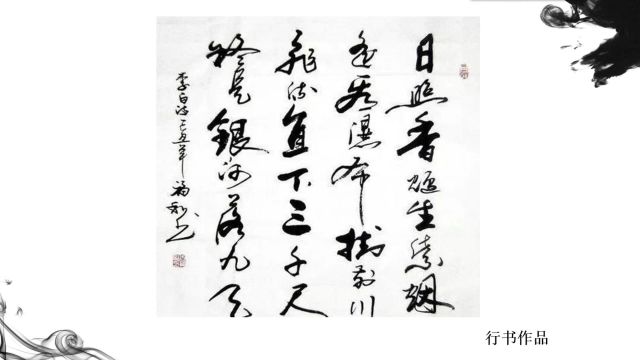 日照香爐生紫烟
遥看瀑布掛前川
飛流直下三千尺
疑是銀河落九天
李白诗己丑年福
行书作品